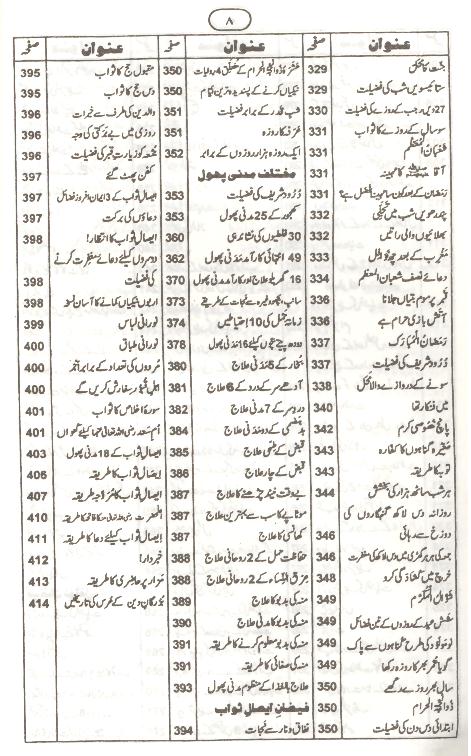 ۸
عنوان صفحہ
جنت کا محل 329
ستائیسویں شب کی فضیلت 329
27ویں رجب کے روزے کی فضیلت 330
سو سال کے روزے کا ثواب 330
شعبان المعظم 331
آقا ﷺ کا مہینہ 331
رمضان کے بعد کون سا مہینہ افضل ہے؟ 331
پندرھویں شب میں تجلی 332
بھلائیوں والی راتیں 332
مغرب کے بعد چھ نوافل 333
دعائے نصف شعبان المعظم 334
قبر پر موم بتیاں جلانا 336
آتش بازی حرام ہے 336
رمضان المبارک 337
درود شریف کی فضیلت 337
سونے کے دروازے والا محل 338
میں فنکار تھا 340
پانچ خصوصی کرم 342
صغیرہ گناہوں کا کفارہ 343
توبہ کا طریقہ 343
ہر شب ساٹھ ہزار کی بخشش 344
روزانہ دس لاکھ گنہگاروں کی
دوزخ سے رہائی 346
جمعہ کی ہر ہر گھڑی میں دس لاکھ کی مغفرت 346
خرچ میں کشادگی کرو 348
شوال المکرم 349
شش عید کے روزوں کے تین فضائل 349
نومولود کی طرح گناہوں سے پاک 349
گویا عمر بھر کا روزہ رکھا 349
سال بھر روزے رکھے 350
ذوالحجۃ الحرام 350
ابتدائی دس دن کی فضیلت 350
عنوان صفحہ
عشرۂ ذوالحجۃ الحرام کے متعلق 4 روایات 350
نیکیاں کرنے کے پسندیدہ ترین ایام 350
شب قدر کے برابر فضیلت 351
عرفہ کا روزہ 351
ایک روزہ ہزار روزوں کے برابر 352
مختلف مدنی پھول
درود شریف کی فضیلت 353
کھجور کے 25 مدنی پھول 353
30 غلطیوں کی نشاندہی 360
49 انتہائی کارآمد مدنی پھول 362
16 گھریلو علاج اور مدنی پھول 370
سانپ، بچھو وغیرہ سے نجات کے طریقے 373
زمانۂ حمل کی 10 احتیاطیں 374
دودھ پیتے بچوں کیلئے 16 مدنی پھول 378
بخار کے 5 مدنی علاج 380
آدھے سر کے درد کے 6 علاج 381
درد سر کے 7 مدنی علاج 382
بدہضمی کے دو مدنی علاج 384
قبض کے طبی علاج 385
قبض کے چار علاج 386
بے وقت نیند چڑھنے کا علاج 387
موٹاپے کا سب سے بہترین علاج 387
کھانسی کا علاج 387
حفاظت حمل کے 2 روحانی علاج 388
عرق النساء کے 2 روحانی علاج 388
منہ کی بدبو کا علاج 389
منہ کی بدبو کا مدنی علاج 390
منہ کی بدبو معلوم کرنے کا طریقہ 391
منہ کی صفائی کا طریقہ 391
علاج بالغذا کے منظوم مدنی پھول 393
فیضان ایصال ثواب
نفاق و نار سے نجات 394
عنوان صفحہ
مقبول حج کا ثواب 395
دس حج کا ثواب 395
والدین کی طرف سے خیرات 396
روزی میں بے برکتی کی وجہ 396
جمعہ کو زیارت قبر کی فضیلت 396
کفن پھٹ گئے 397
ایصال ثواب کے 3 ایمان افروز فضائل 397
دعاؤں کی برکت 397
ایصال ثواب کا انتظار! 398
دوسروں کیلئے دعائے مغفرت کرنے
کی فضیلت 398
اربوں نیکیاں کمانے کا آسان نسخہ 398
نورانی لباس 399
نورانی طباق 400
مردوں کی تعداد کے برابر اجر 400
اہل قبور سفارش کریں گے 400
سورۂ اخلاص کا ثواب 401
ام سعد رضی اللہ تعالیٰ عنہا کیلئے کنواں 401
ایصال ثواب کے 18 مدنی پھول 403
ایصال ثواب کا طریقہ 406
ایصال ثواب کا مروجہ طریقہ 407
اعلیٰ حضرت رضی اللہ تعالیٰ عنہ کا فاتحہ کا طریقہ 410
ایصال ثواب کیلئے دعا کا طریقہ 411
خبردار! 412
مزار پر حاضری کا طریقہ 413
بزرگان دین کے عرس کی تاریخیں 414